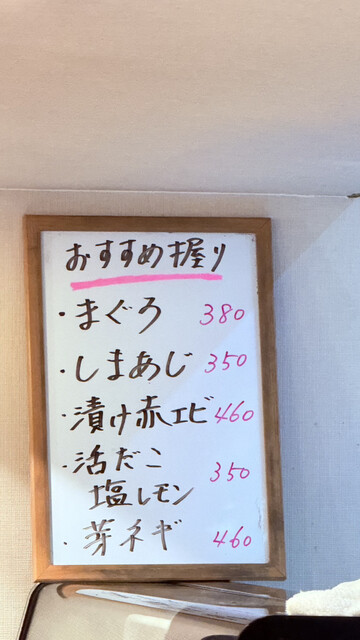 おすすめ握り
・まぐろ 380
・しまあじ 350
・漬け赤エビ 460
・活だこ
塩レモン 350
・芽ネギ 460